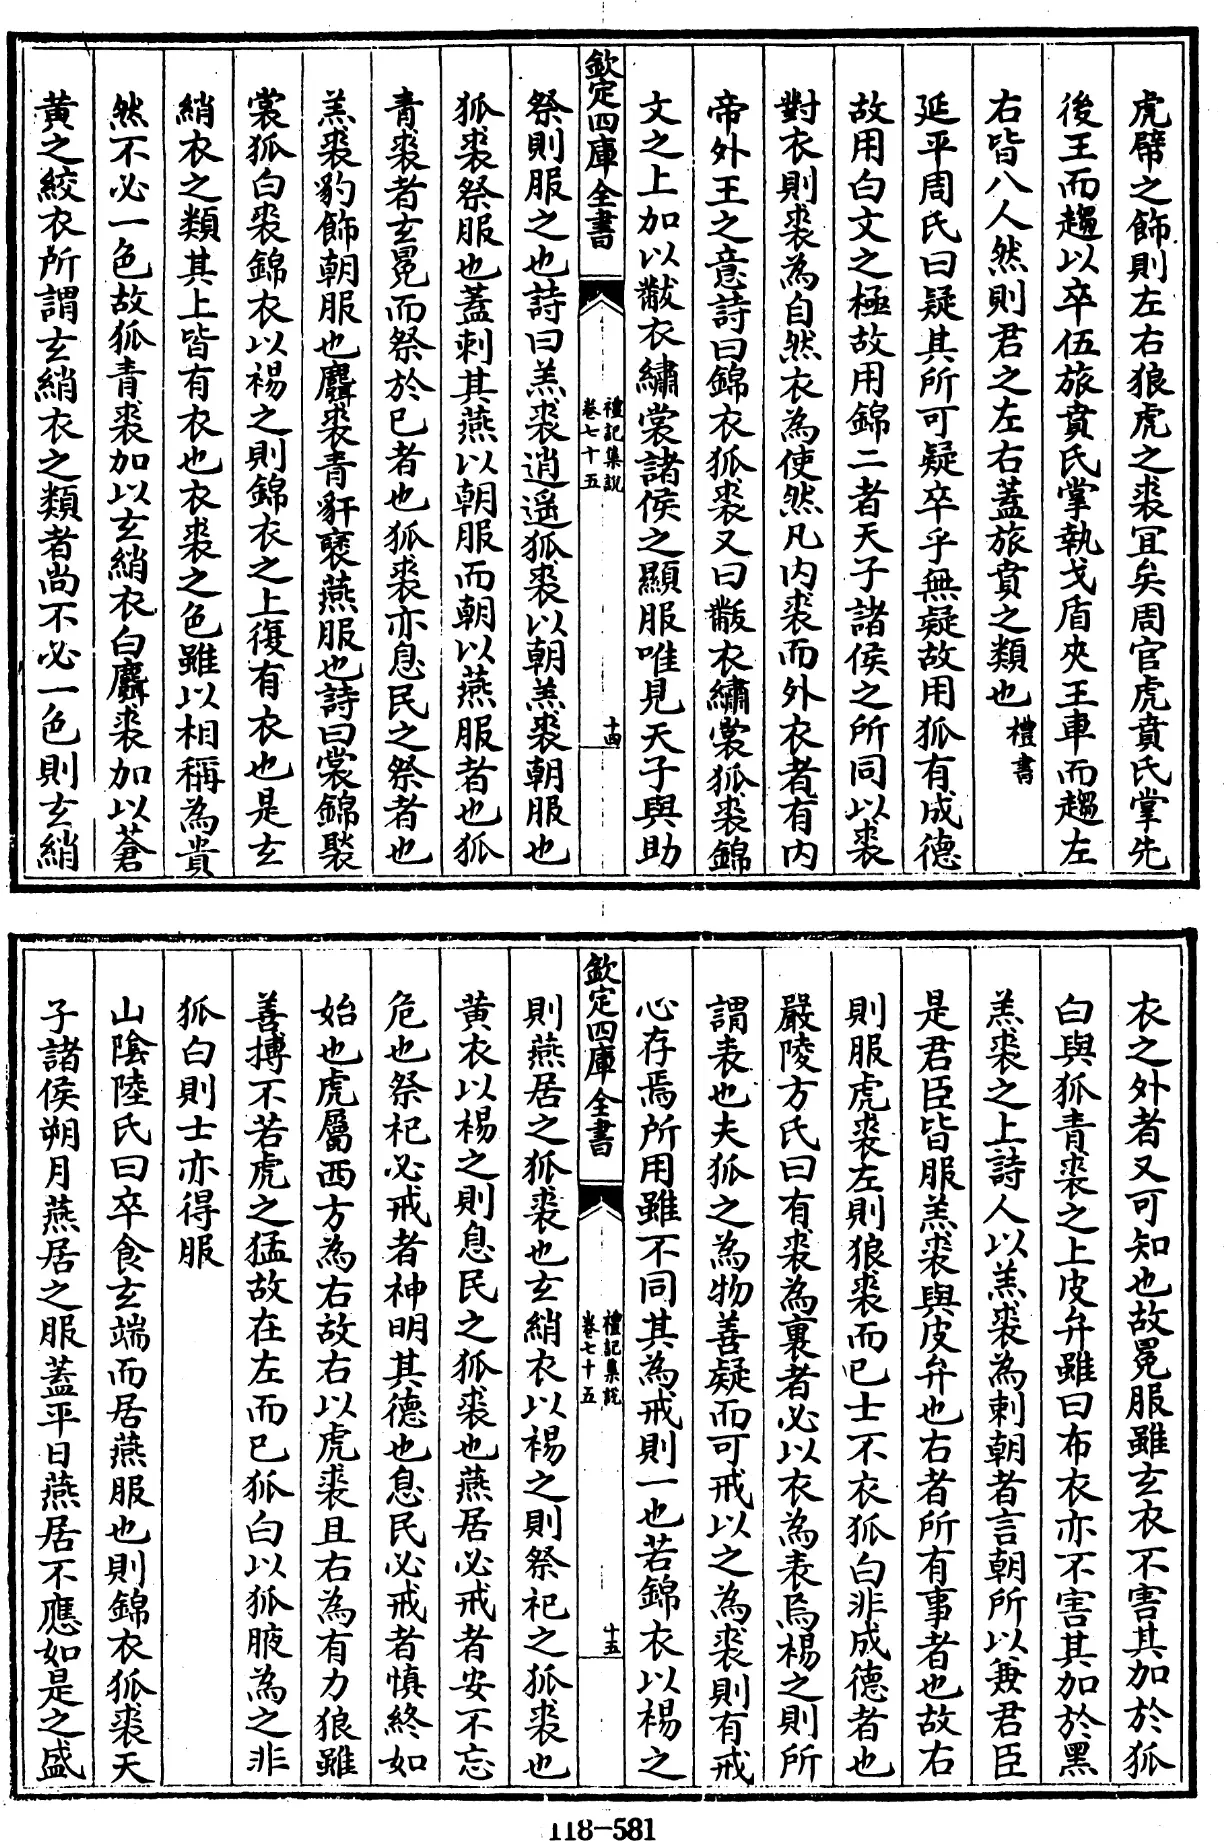 虎臂之飾則左右狼虎之裘宜矣周官虎賁氏掌先
後王而趨以卒伍旅賁氏掌執戈盾夾王車而趨左
右皆八人然則君之左右蓋旅賁之類也禮書
延平周氏曰疑其所可疑卒乎無疑故用狐有成德
故用白文之極故用錦二者天子諸侯之所同以裘
對衣則裘為自然衣為使然凡内裘而外衣者有内
帝外王之意詩曰錦衣狐裘又曰黻衣繡裳狐裘錦
文之上加以黻衣繡裳諸侯之顯服唯見天子與助
欽定四庫全書
禮記集說
卷七十五
十四
祭則服之也詩曰羔裘逍遥狐裘以朝羔裘朝服也
狐裘祭服也蓋刺其燕以朝服而朝以燕服者也狐
青裘者玄冕而祭於已者也狐裘亦息民之祭者也
羔裘豹飾朝服也麛裘青豻褎燕服也詩曰裳錦褧
裳狐白裘錦衣以裼之則錦衣之上復有衣也是玄
綃衣之類其上皆有衣也衣裘之色雖以相稱為貴
然不必一色故狐青裘加以玄綃衣白麛裘加以蒼
黄之絞衣所謂玄綃衣之類者尚不必一色則玄綃
衣之外者又可知也故冕服雖玄衣不害其加於狐
白與狐青裘之上皮弁雖曰布衣亦不害其加於黑
羔裘之上詩人以羔裘為刺朝者言朝所以兼君臣
是君臣皆服羔裘與皮弁也右者所有事者也故右
則服虎裘左則狼裘而已士不衣狐白非成德者也
嚴陵方氏曰有裘為裏者必以衣為表焉裼之則所
謂表也夫狐之為物善疑而可戒以之為裘則有戒
心存焉所用雖不同其為戒則一也若錦衣以裼之
欽定四庫全書
禮記集說
卷七十五
十五
則燕居之狐裘也玄綃衣以裼之則祭祀之狐裘也
黄衣以裼之則息民之狐裘也燕居必戒者安不忘
危也祭祀必戒者神明其德也息民必戒者慎終如
始也虎屬西方為右故右以虎裘且右為有力狼雖
善搏不若虎之猛故在左而已狐白以狐腋為之非
狐白則士亦得服
山陰陸氏曰卒食玄端而居燕服也則錦衣狐裘天
子諸侯朔月燕居之服蓋平日燕居不應如是之盛
118-581